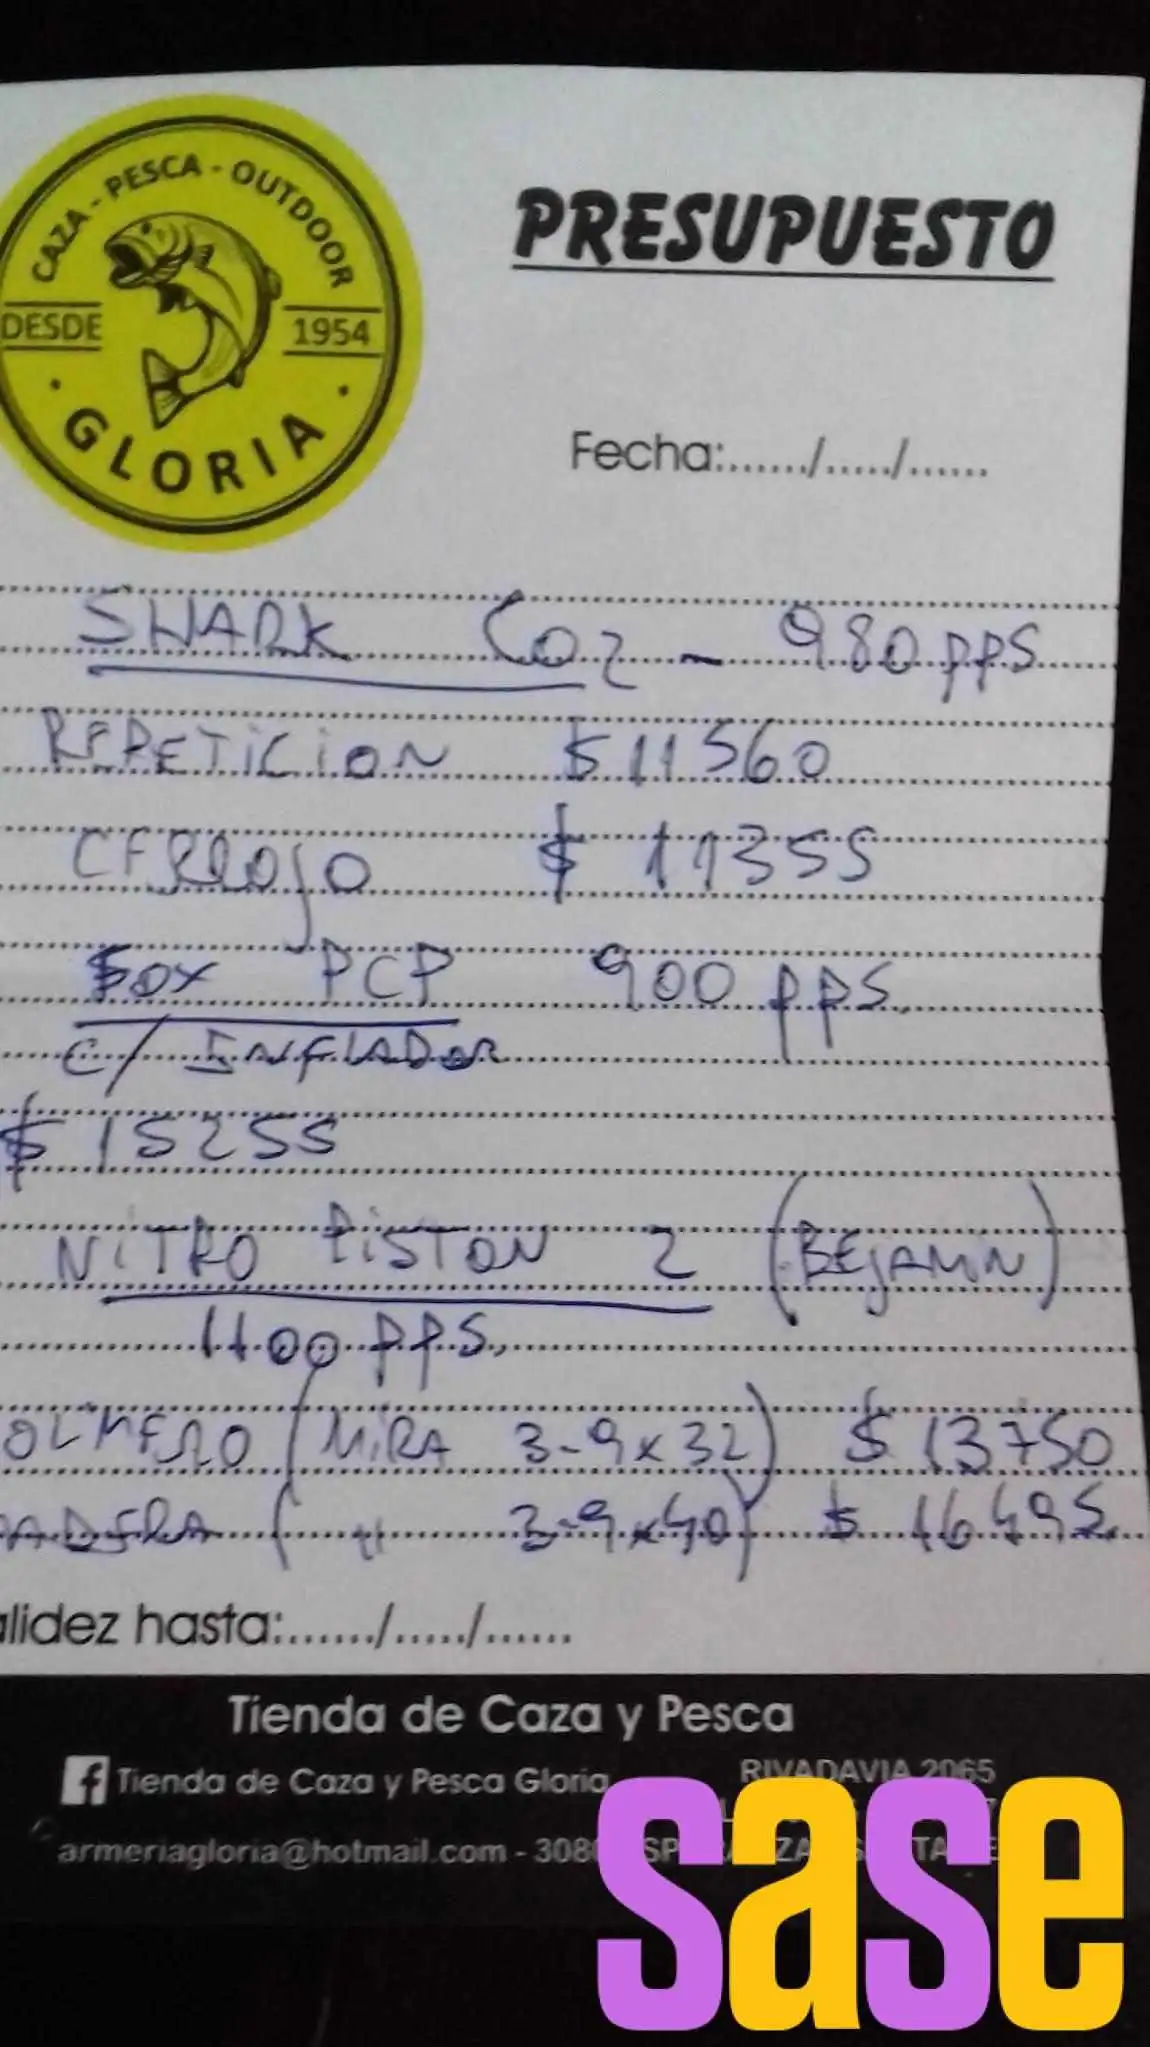 CAZA - PESCA - OUTDOOR
DESDE 1954
GLORIA
PRESUPUESTO
Fecha:......./...../......
SHARK CO2 - 980 pps
REPETICION $ 11560
CERROJO $ 11355
FOX PCP 900 pps.
C/ INFLADOR
$ 15255
NITRO PISTON 2 (BEJAMIN)
1100 pps.
OLIMERO (MIRA 3-9x32) $ 13750
ADERA ( " 3-9x40) $ 16495
alidez hasta:......./...../......
Tienda de Caza y Pesca
Tienda de Caza y Pesca Gloria
RIVADAVIA 2065
armeriagloria@hotmail.com - 308
sase